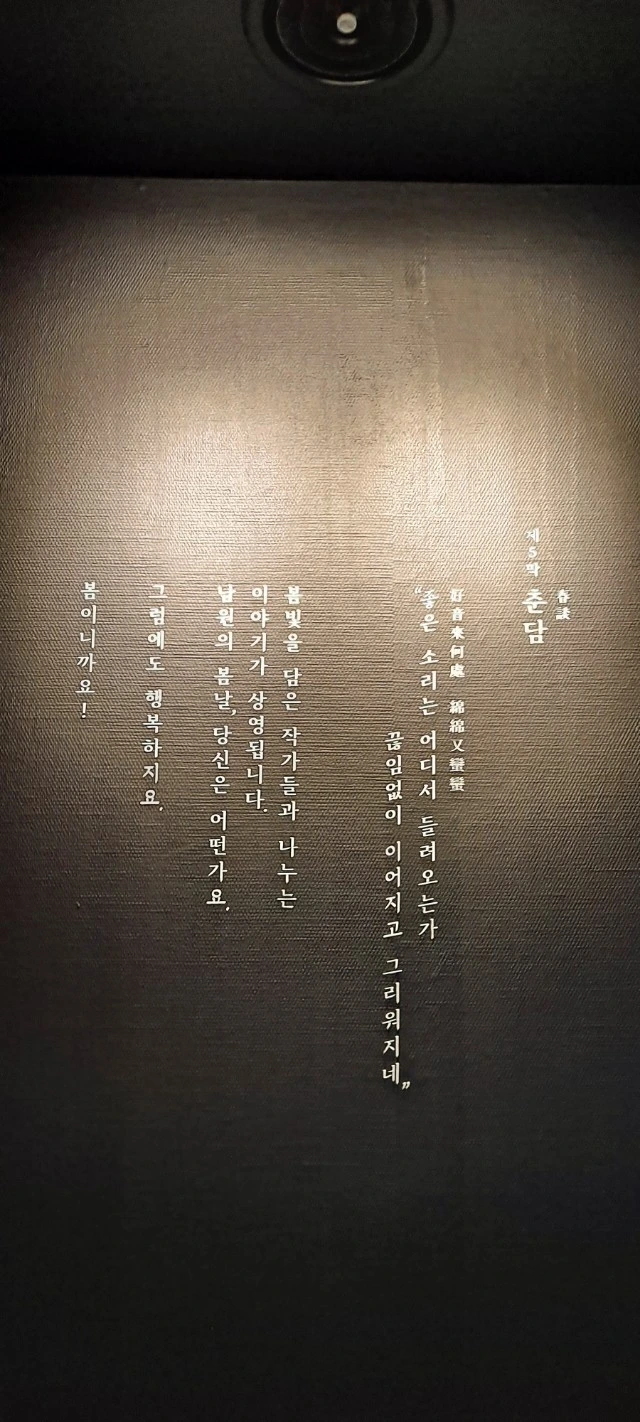 春談
제5막 춘담
好音來何處 綿綿又蠻蠻
“좋은 소리는 어디서 들려오는가
끊임없이 이어지고 그리워지네”
봄빛을 담은 작가들과 나누는
이야기가 상영됩니다.
남원의 봄날, 당신은 어떤가요.
그럼에도 행복하지요.
봄이니까요!